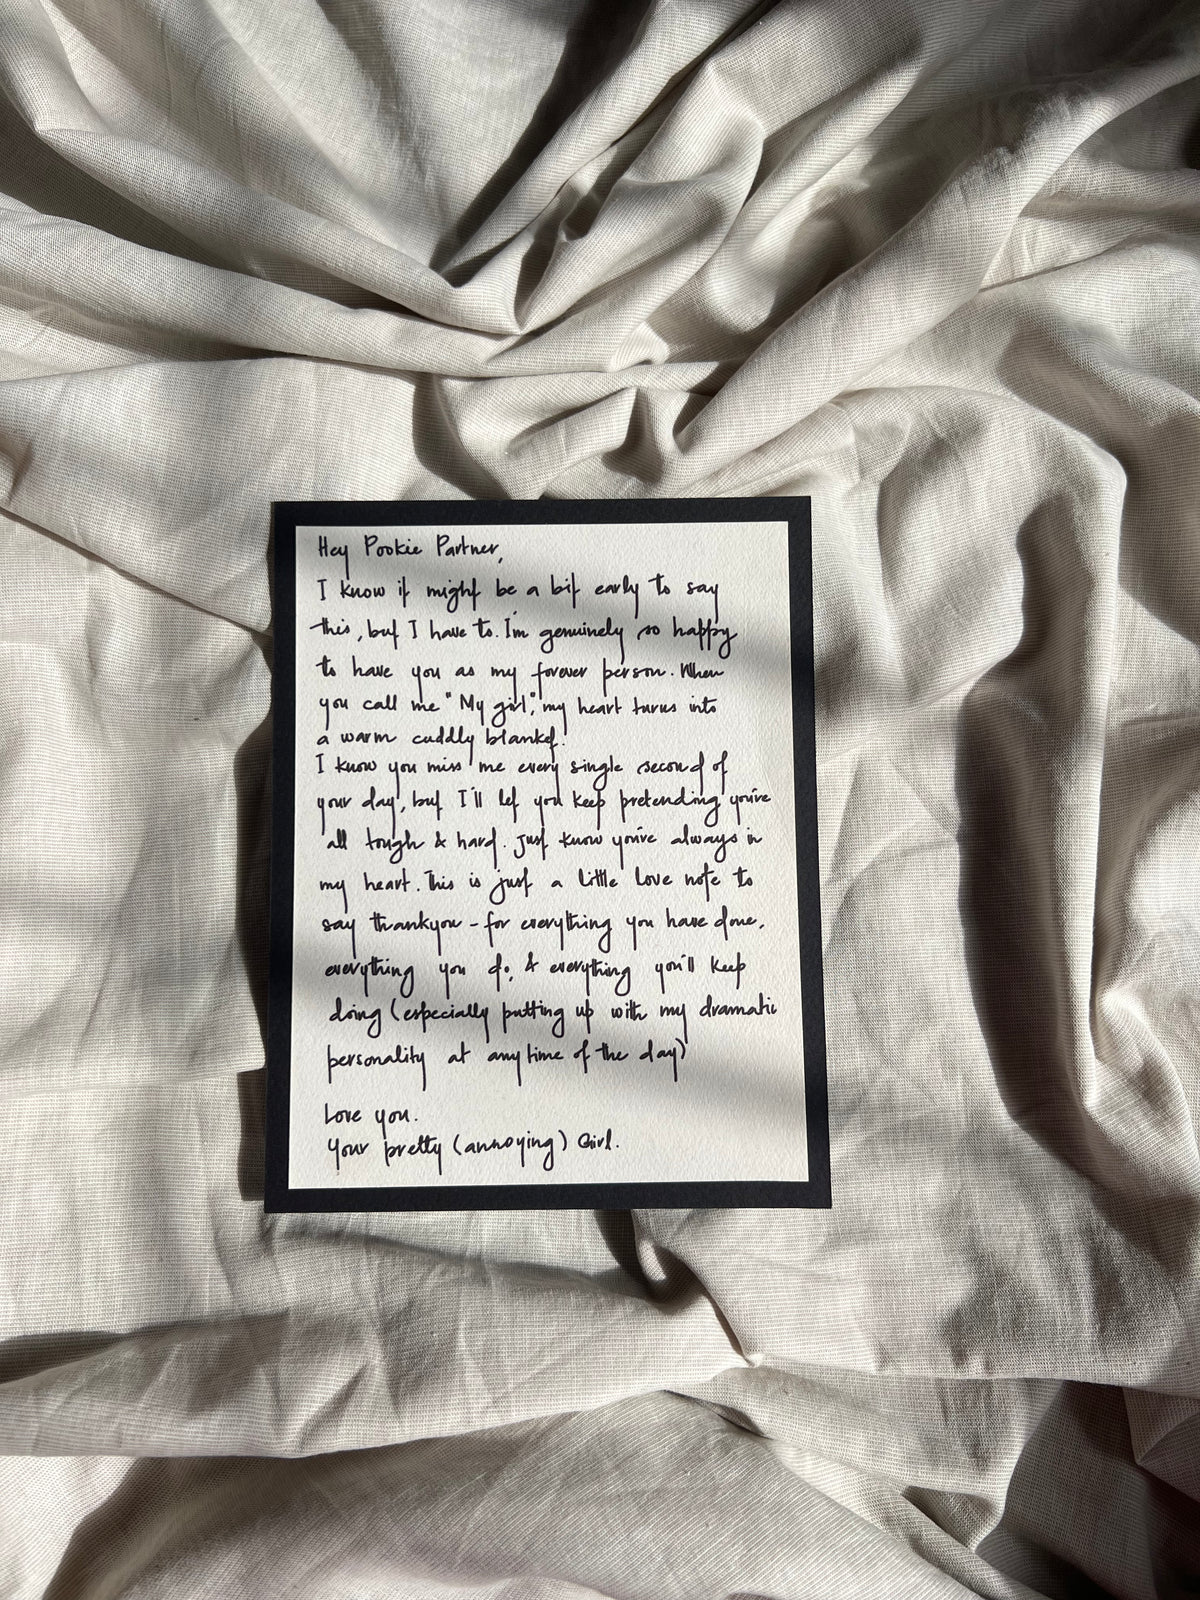 Hey Pookie Partner,
I know it might be a bit early to say
this, but I have to. I'm genuinely so happy
to have you as my forever person. When
you call me "My girl", my heart turns into
a warm cuddly blanket.
I know you miss me every single second of
your day, but I'll let you keep pretending you're
all tough & hard. Just know you're always in
my heart. This is just a little love note to
say thankyou - for everything you have done,
everything you do, & everything you'll keep
doing (especially putting up with my dramatic
personality at any time of the day)
Love you.
Your pretty (annoying) Girl.